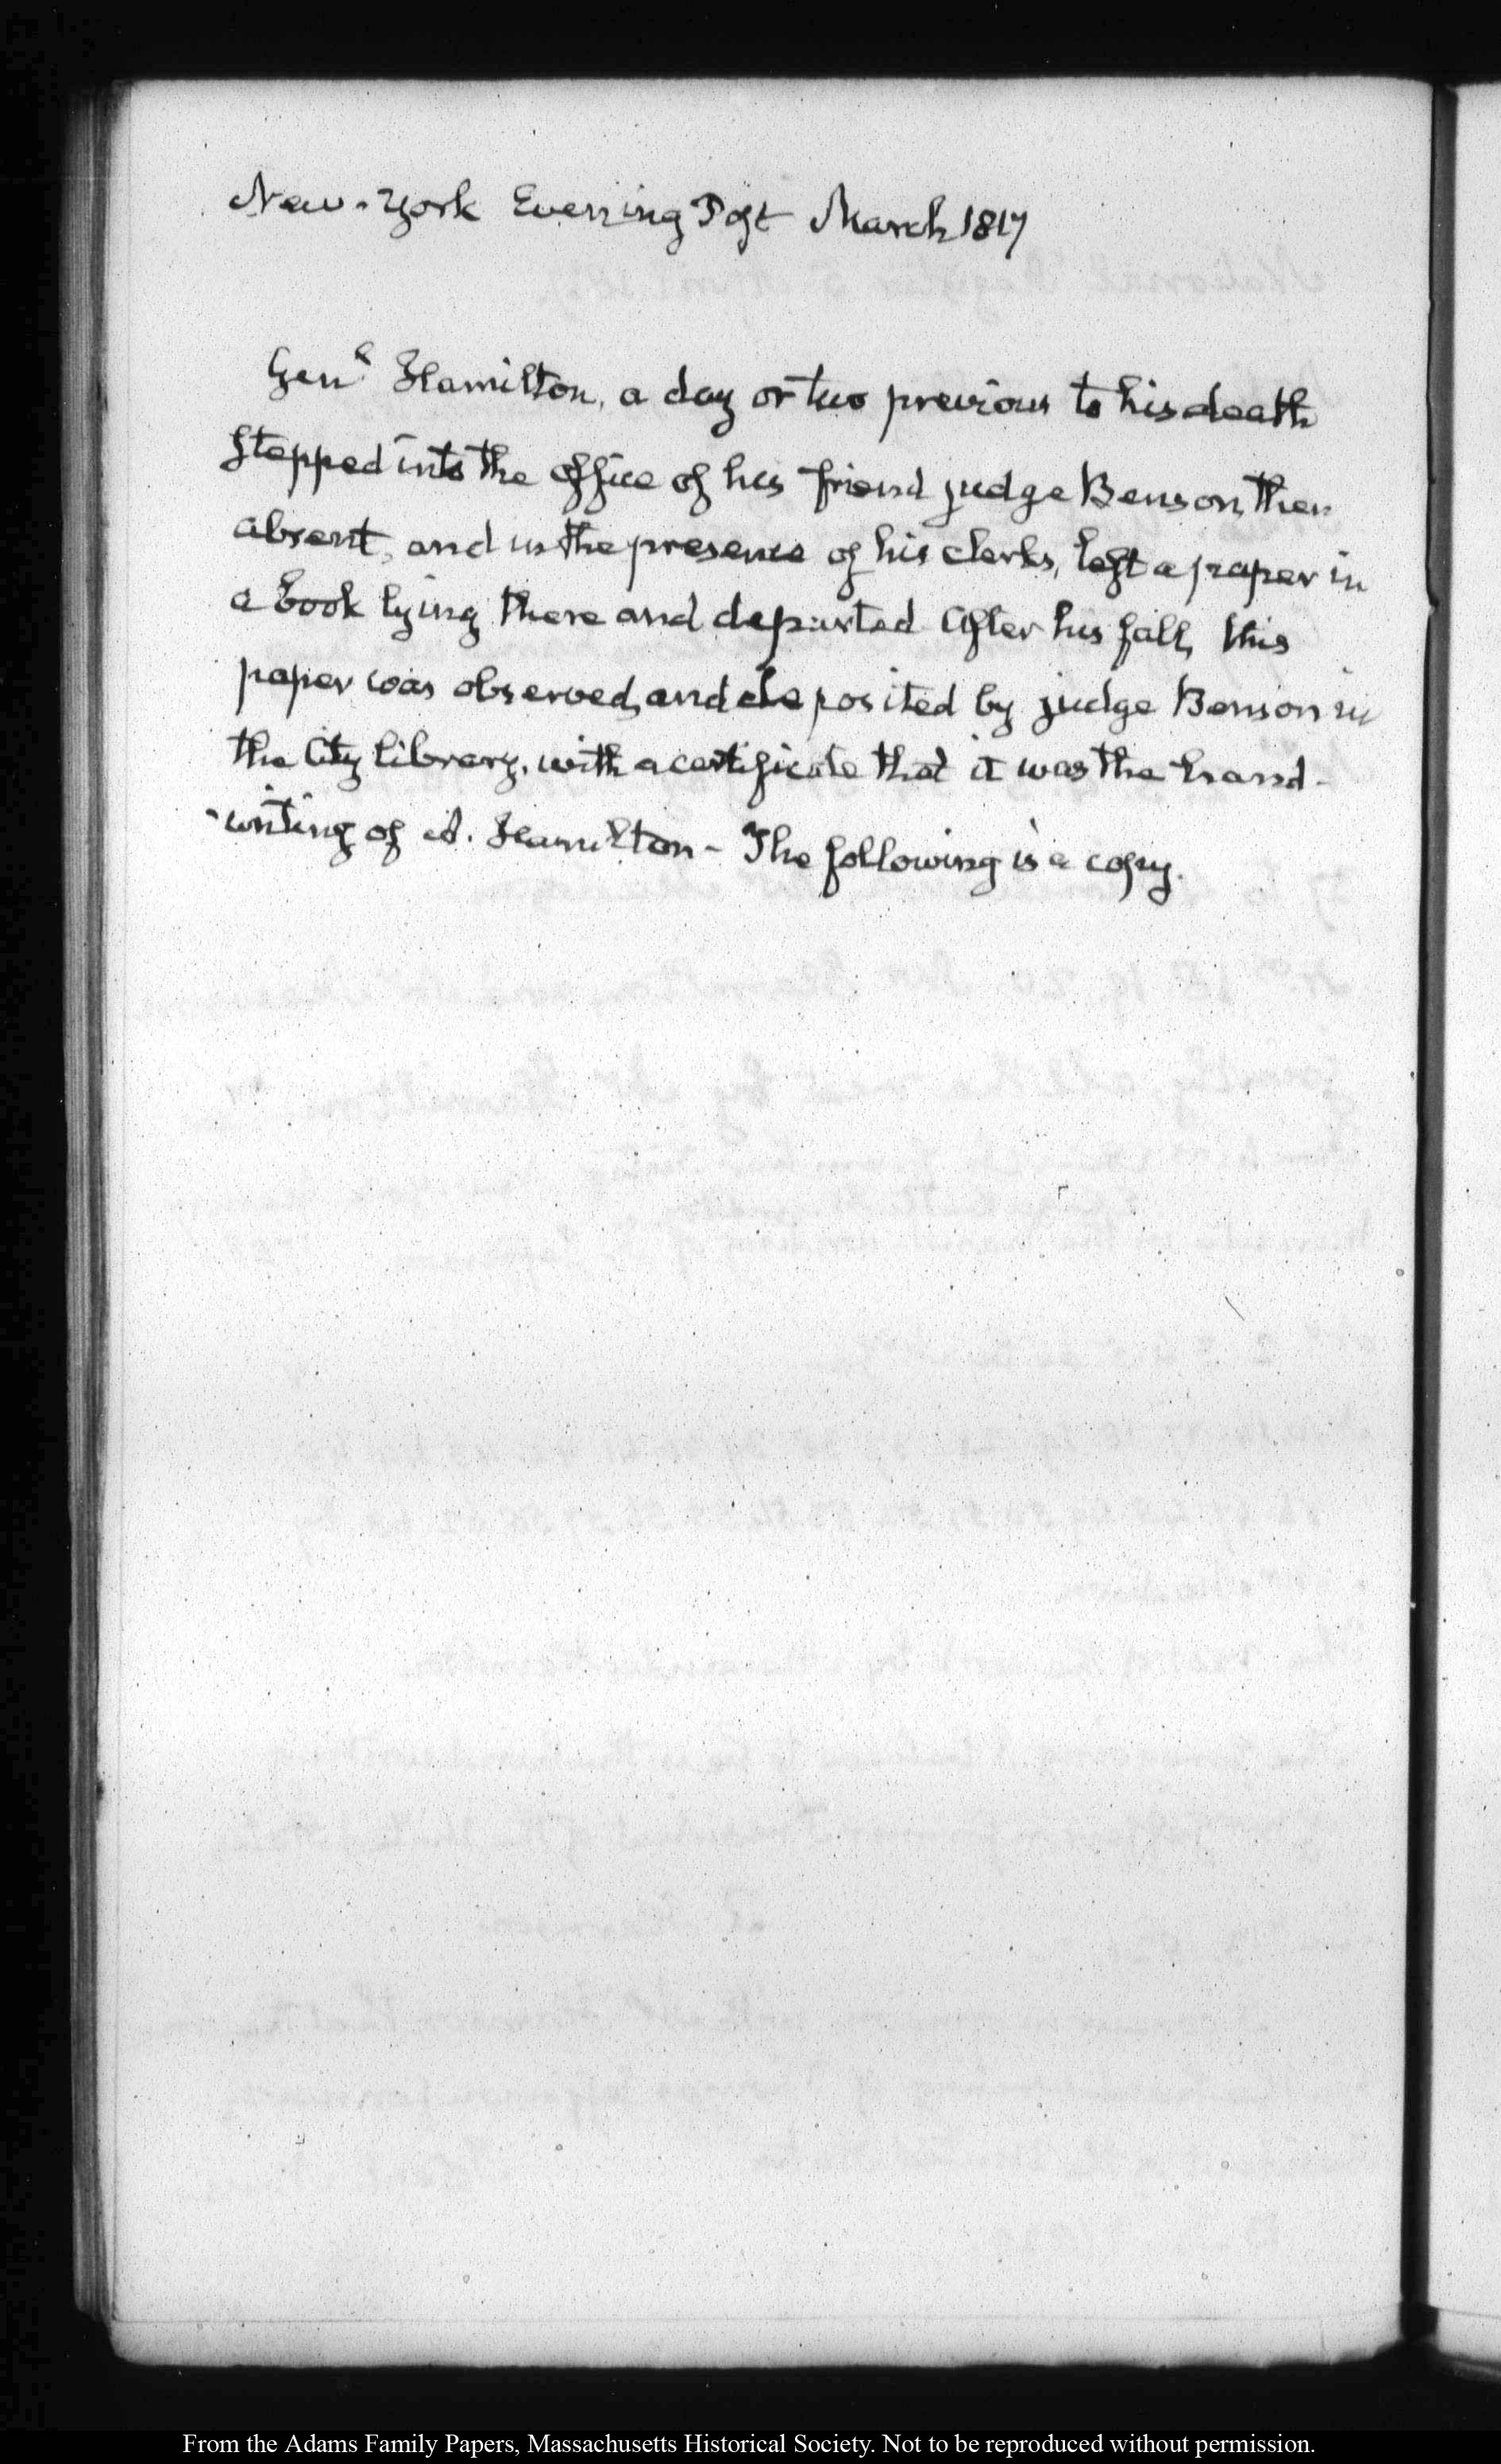 New-York Evening Post March 1817
Genl Hamilton, a day or two previous to his death
stepped into the office of his friend judge Benson, then
absent, and in the presence of his clerks, left a paper in
a book lying there and departed After his fall, this
paper was observed, and deposited by judge Benson in
the City library, with a certificate that it was the hand-
-writing of A. Hamilton - The following is a copy.
From the Adams Family Papers, Massachusetts Historical Society. Not to be reproduced without permission.